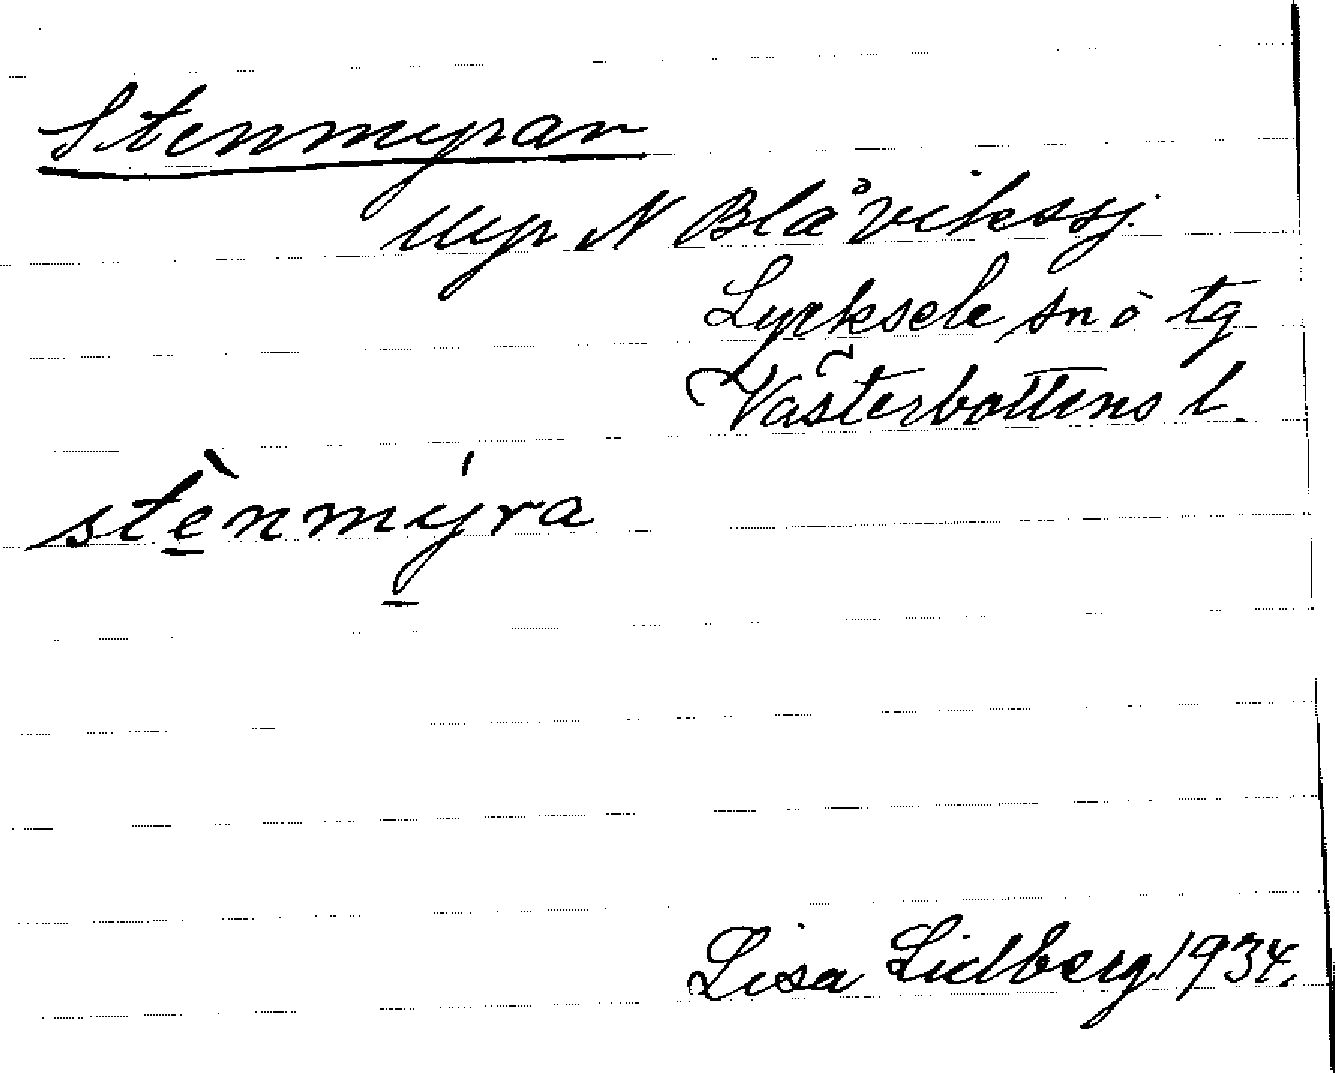 Stenmyran
Myr N Blåvikssj.
Lycksele sn o tg
Västerbottens l.
stènmýra
Lisa Lidberg 1934.